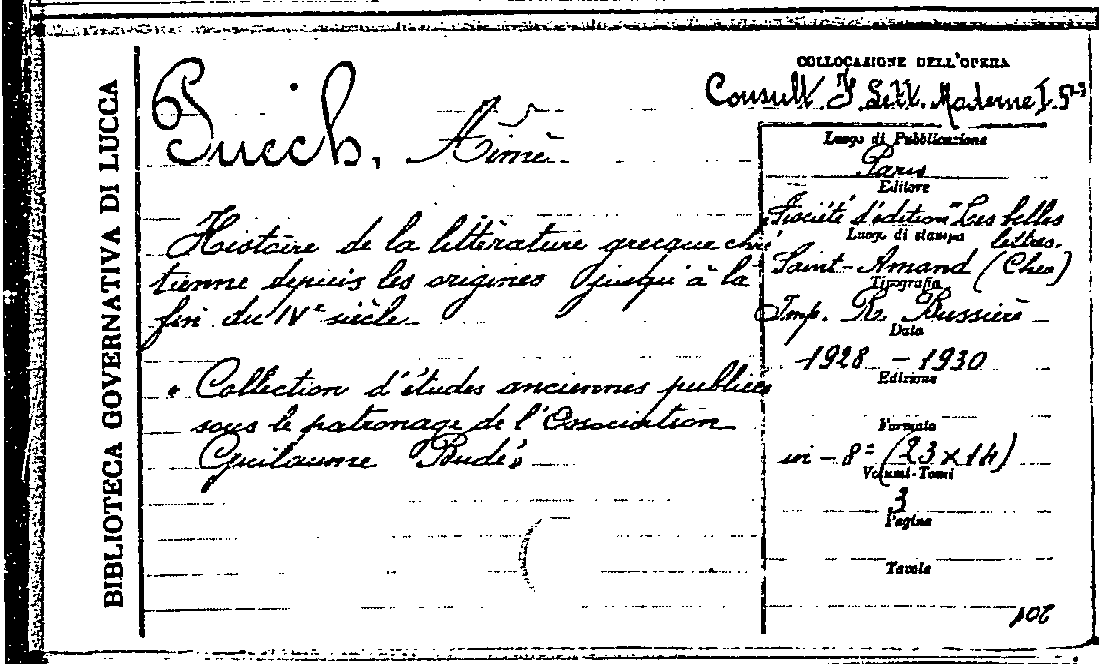 BIBLIOTECA GOVERNATIVA DI LUCCA
COLLOCAZIONE DELL'OPERA
Consult. Lett. Moderne I.
Puech, Aimè
Histoire de la littèrature grecque chré
tienne depuis les origines jusqu'à la
fin du IVe siècle
« Collection d'études anciennes publiées
sous le patronage de l'Association
Guilaume Budè»
Luogo di Pubblicazione
Paris
Editore
Société d'édition "Les belles
lettres.
Luogo di stampa
Saint-Amand (Cher)
Tipografia
Imp. R. Bussière
Data
1928 - 1930
Edizione
Formato
in-8º (23x14)
Volumi-Tomi
3
Pagine
Tavole